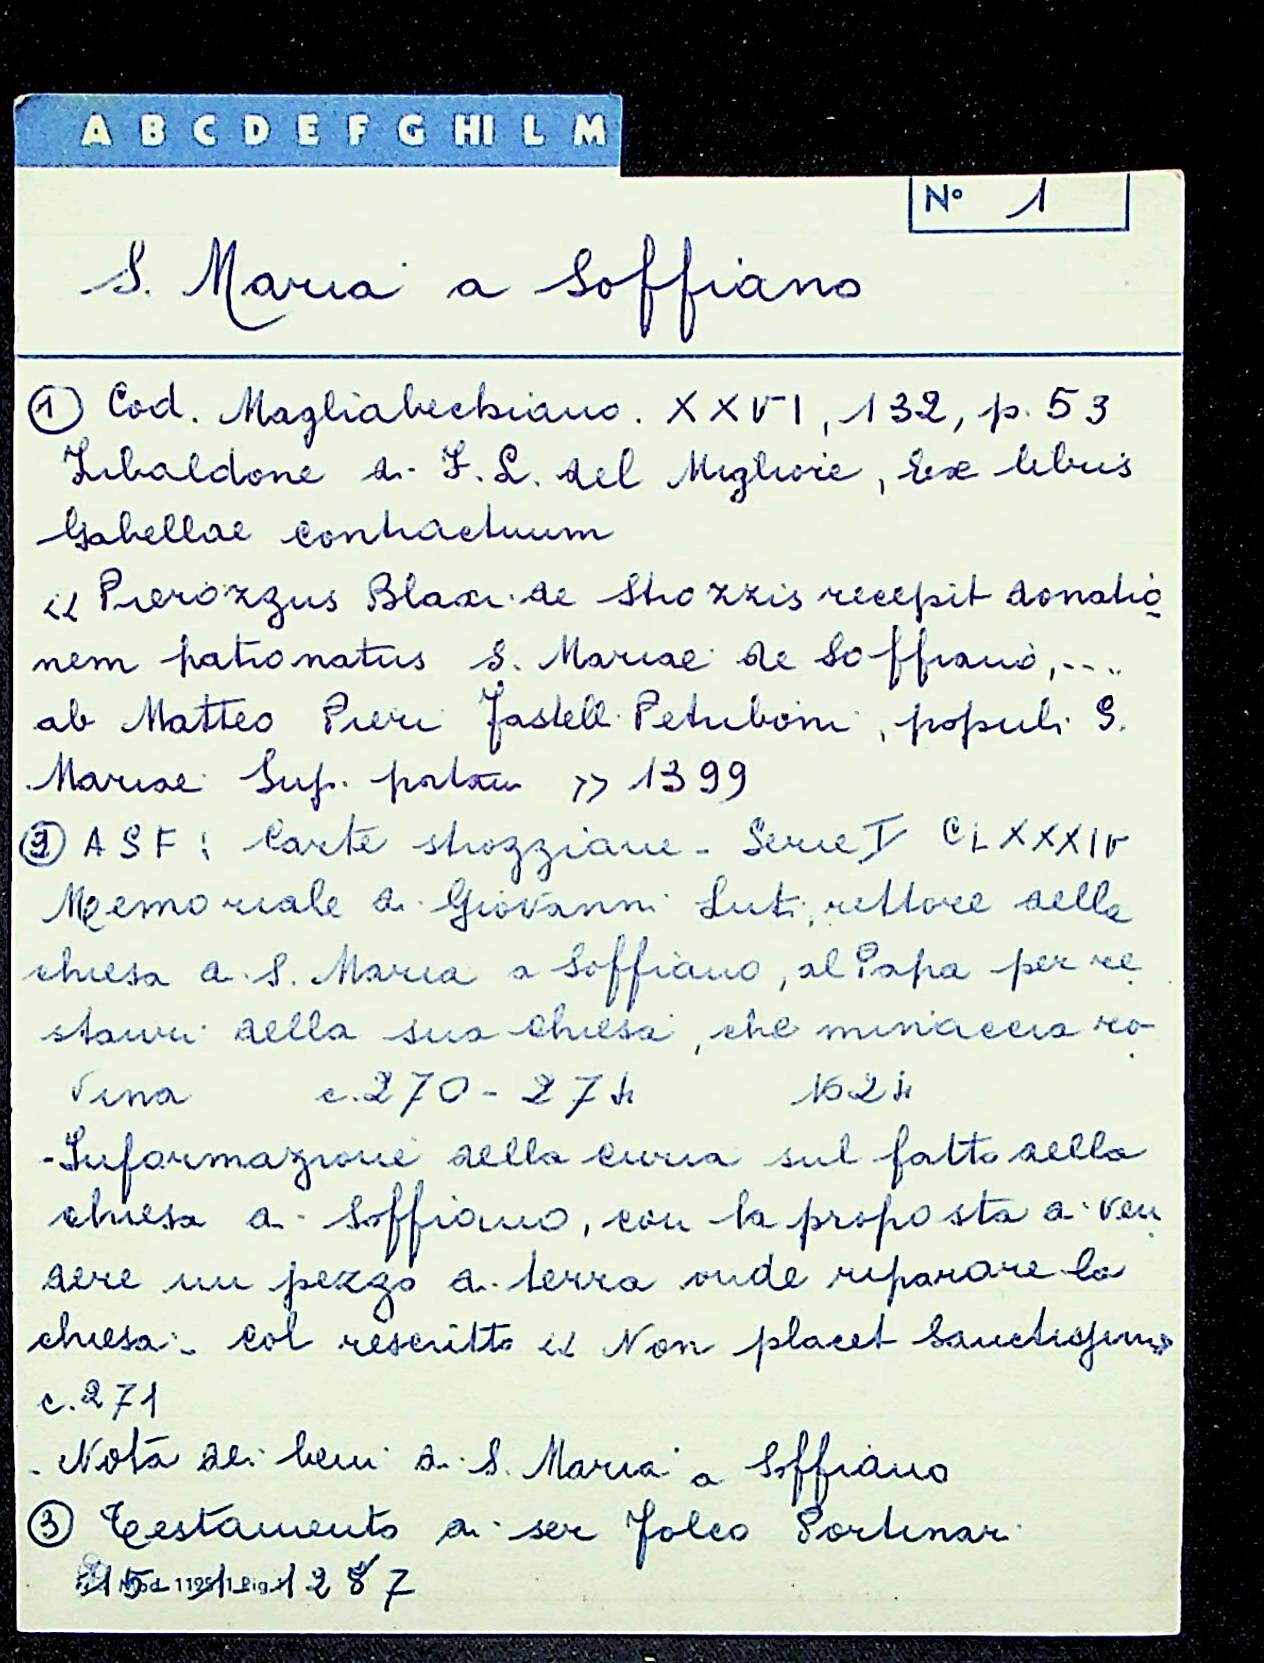 A B C D E F G HI L M
N° 1
S. Maria a Soffiano
① Cod. Magliabechiano. XXVI, 132, p. 53
Zibaldone di F. L. del Migliore, Ex libris
Gabellae contractuum
« Pierozzus Blaxi de Strozzis recepit donatio
nem patronatus S. Mariae de Soffiano, ....
ab Matteo Pieri Fastell Petriboni, populi S.
Mariae Sup. portam » 1399
② ASF: Carte strozziane - Serie I CLXXXIV
Memoriale di Giovanni Luti, rettore della
chiesa di S. Maria a Soffiano, al Papa per re
stauri della sua chiesa, che minaccia ro-
vina c. 270 - 274 1624
- Informazione della curia sul fatto della
chiesa di Soffiano, con la proposta di ven
dere un pezzo di terra onde riparare la
chiesa - col rescritto « Non placet Sanctissimo»
c. 271
- Nota dei beni di S. Maria a Soffiano
③ Testamento di ser Folco Portinari
15 - 1 - 1287